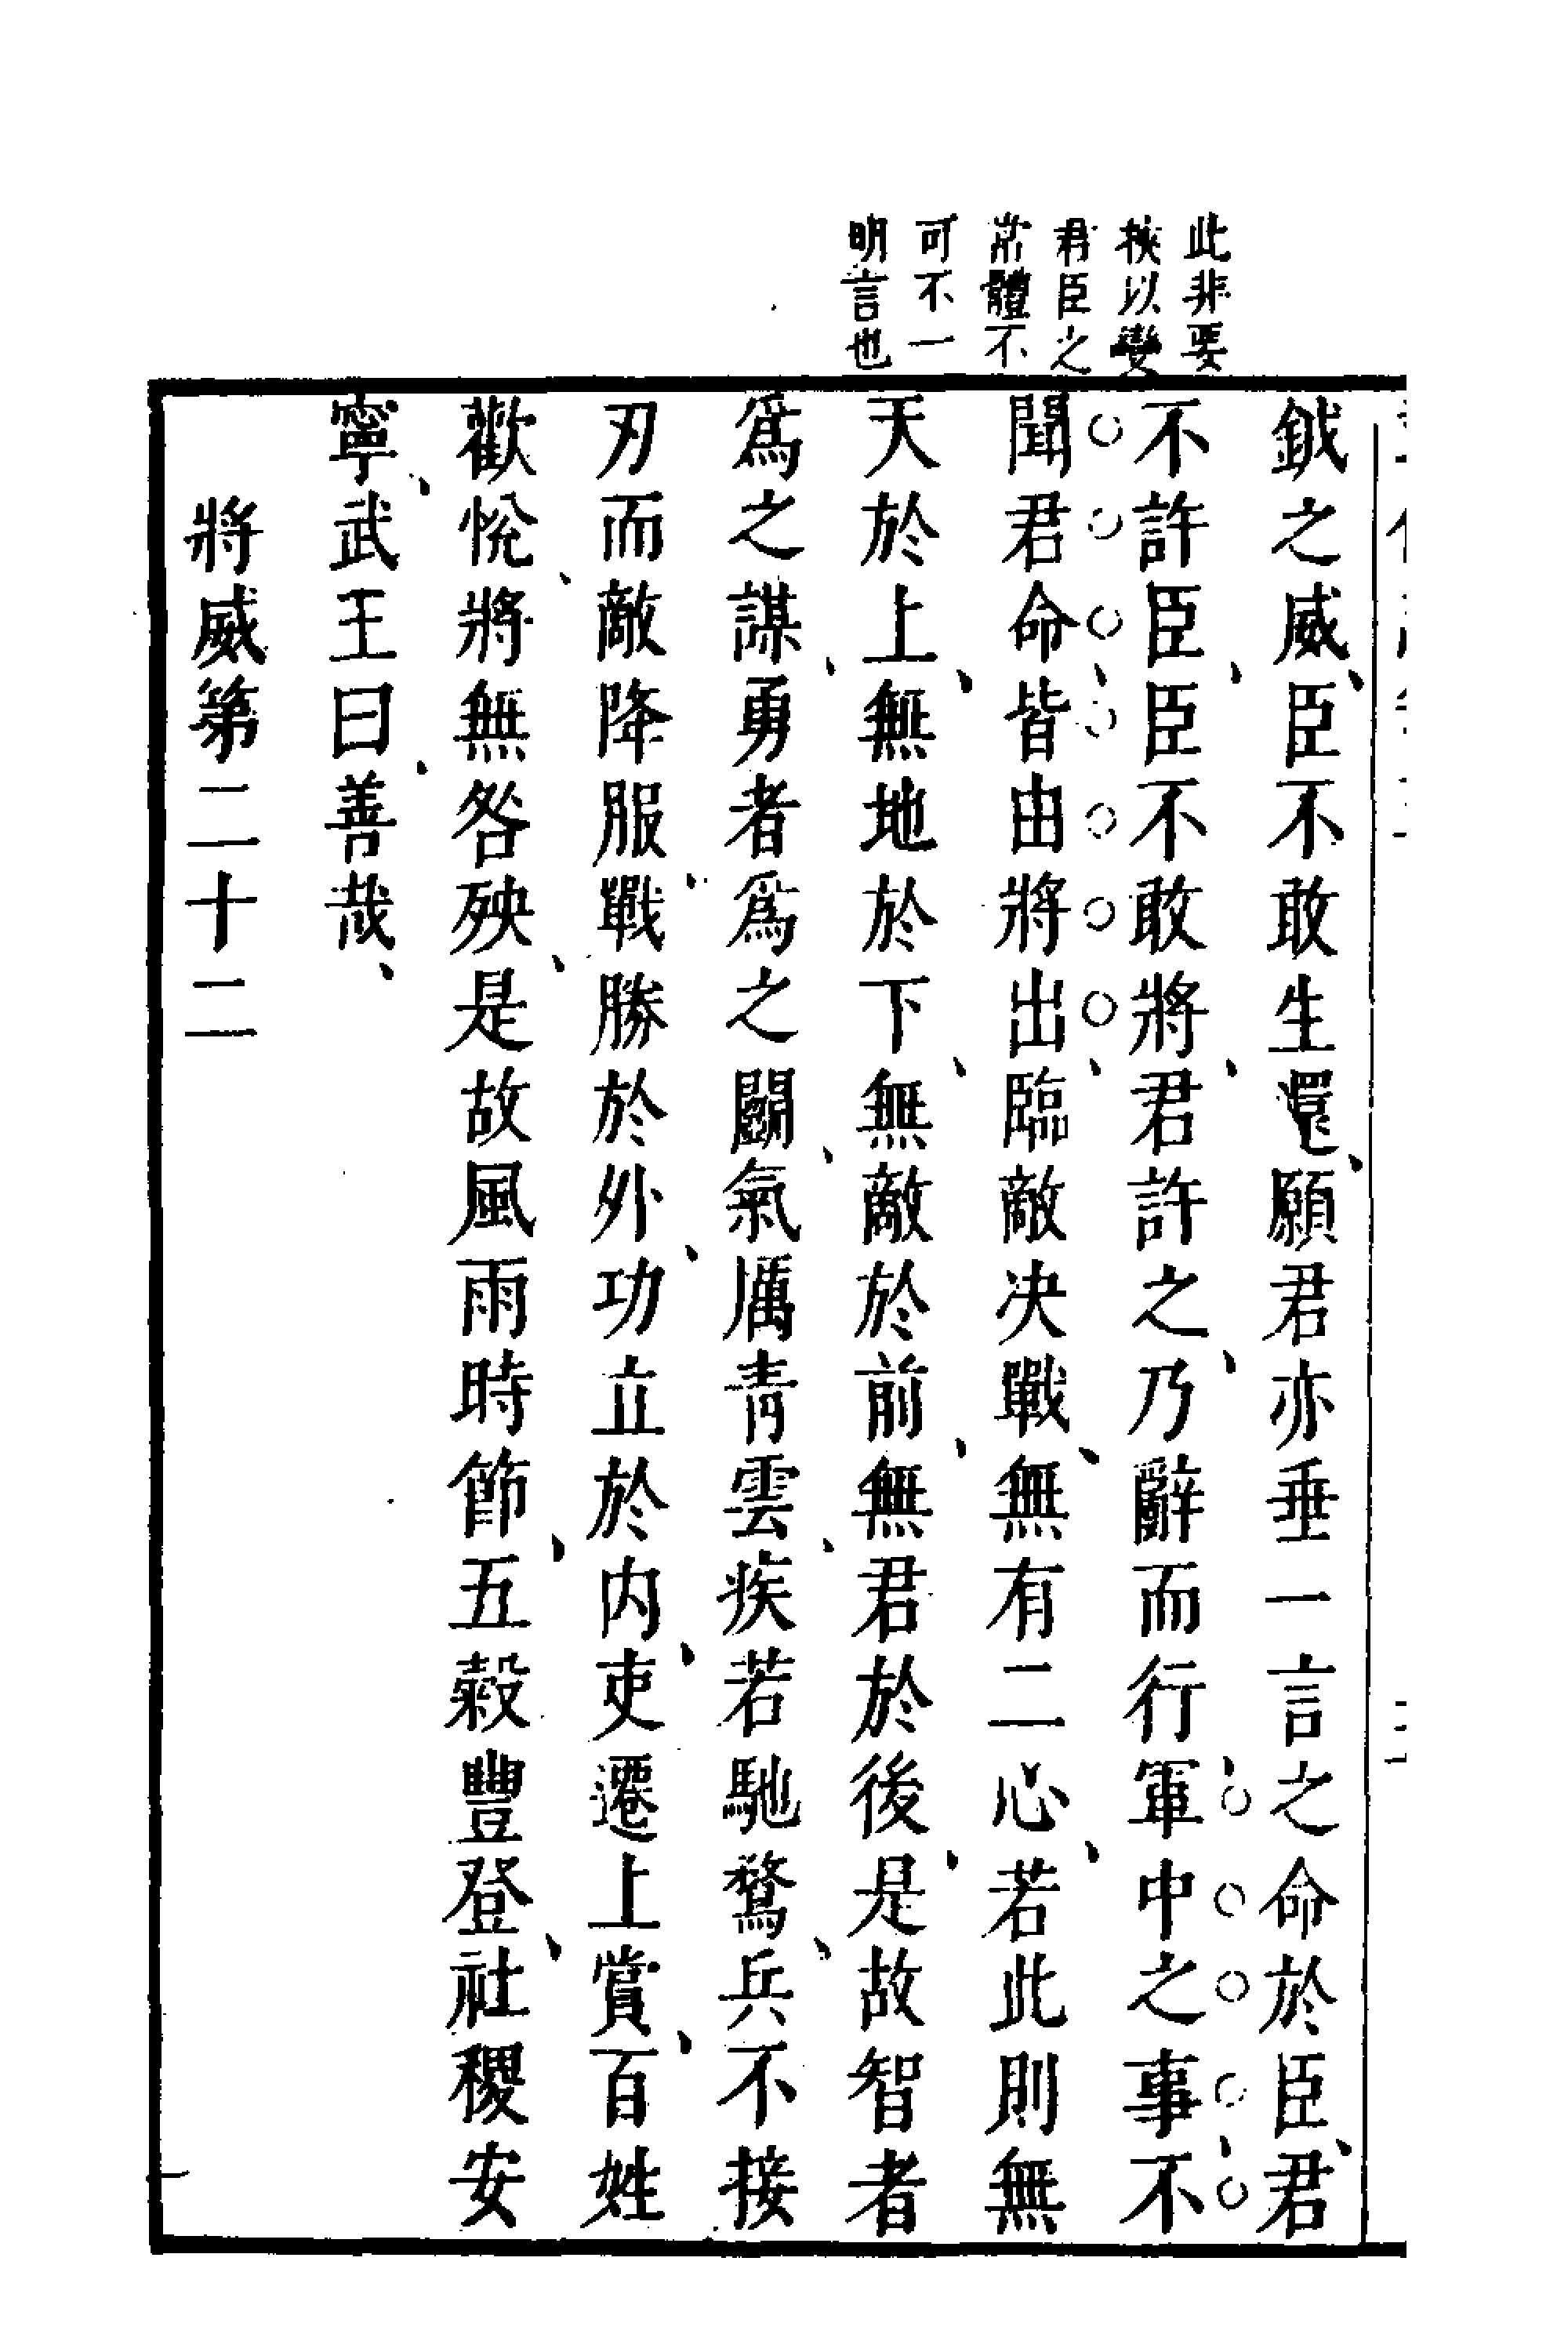 此非要
挾以變
君臣之
常體不
可不一
明言也
鉞之威、臣不敢生還、願君亦垂一言之命於臣、君
不許臣、臣不敢將、君許之、乃辭而行、軍中之事、不
聞君命、皆由將出、臨敵决戰、無有二心、若此則無
天於上、無地於下、無敵於前、無君於後、是故智者
爲之謀、勇者爲之鬭、氣厲青雲、疾若馳騖、兵不接
刃而敵降服、戰勝於外、功立於内、吏遷上賞、百姓
歡悅、將無咎殃、是故風雨時節、五穀豐登、社稷安
寧、武王曰、善哉、
將威第二十二